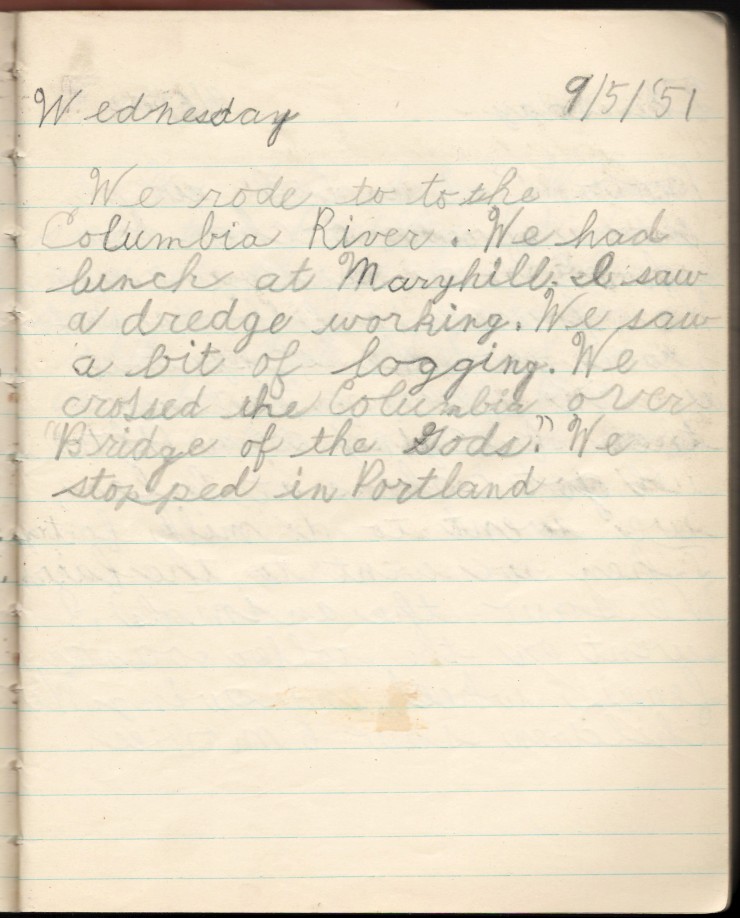 Wednesday 9/5/'51
We rode to to the
Columbia River. We had
lunch at Maryhill. I saw
a dredge working. We saw
a bit of logging. We
crossed the Columbia over
"Bridge of the Gods." We
stopped in Portland